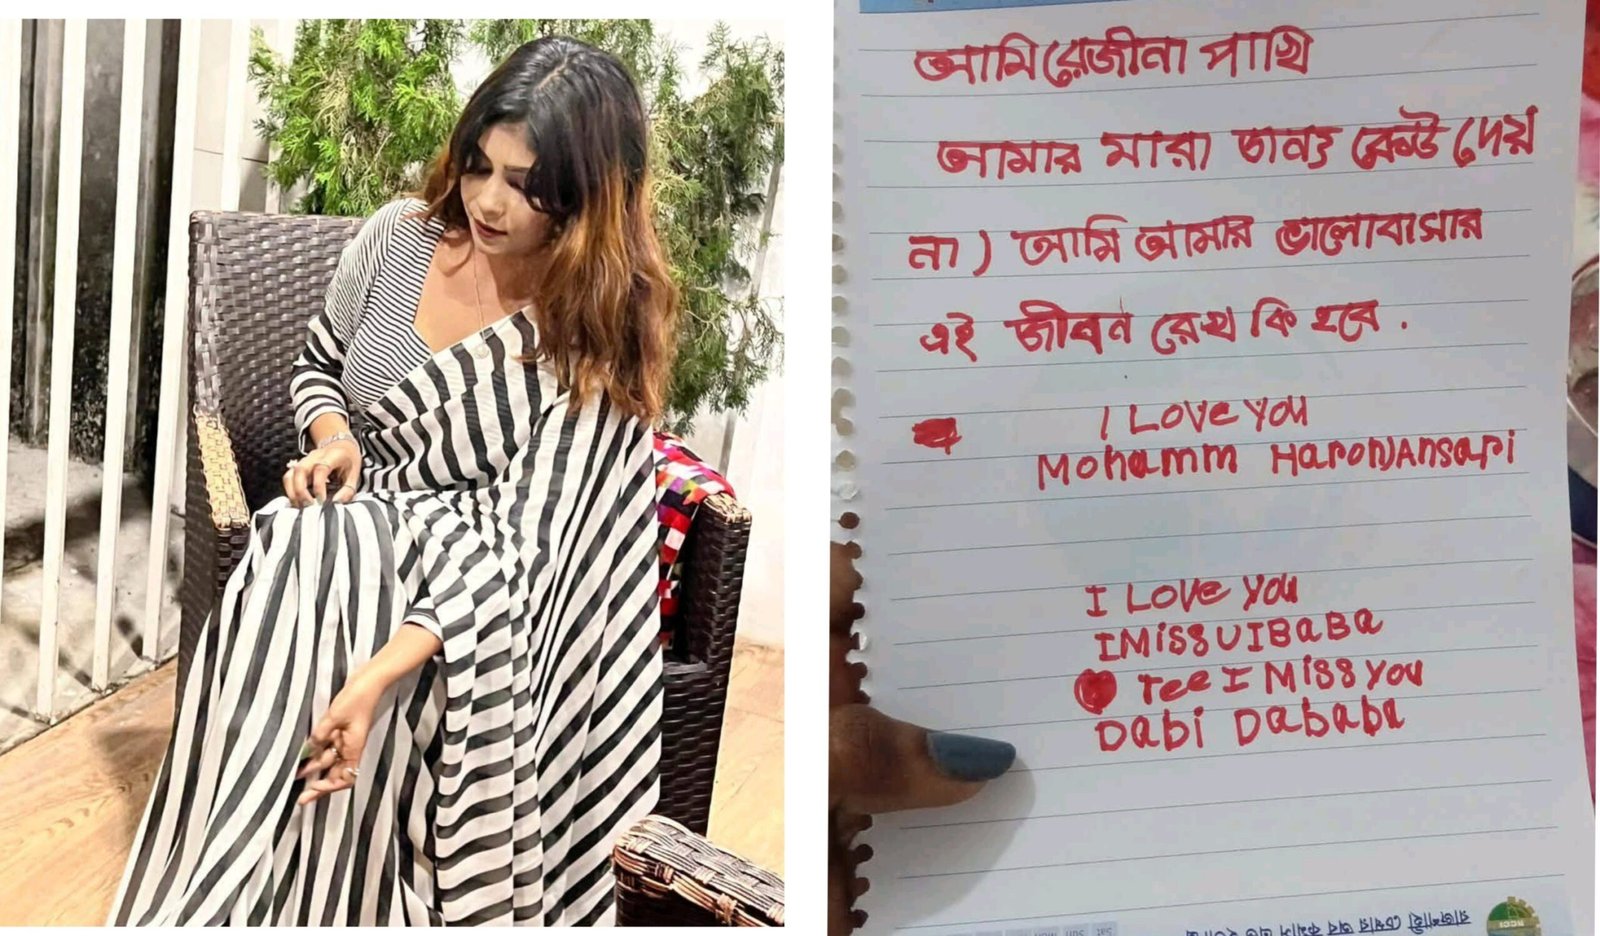 আমি রেজীনা পাখি
আমার মারা জন্য কেউ দেয়
না) আমি আমার ভালোবাসার
এই জীবন রেখ কি হবে.
I Love you
Mohamm HaronJAnsari
I Love you
IMiss U IBaBa
Tee I Miss you
Dabi Dababa
Sat Sun Mon
RCCI